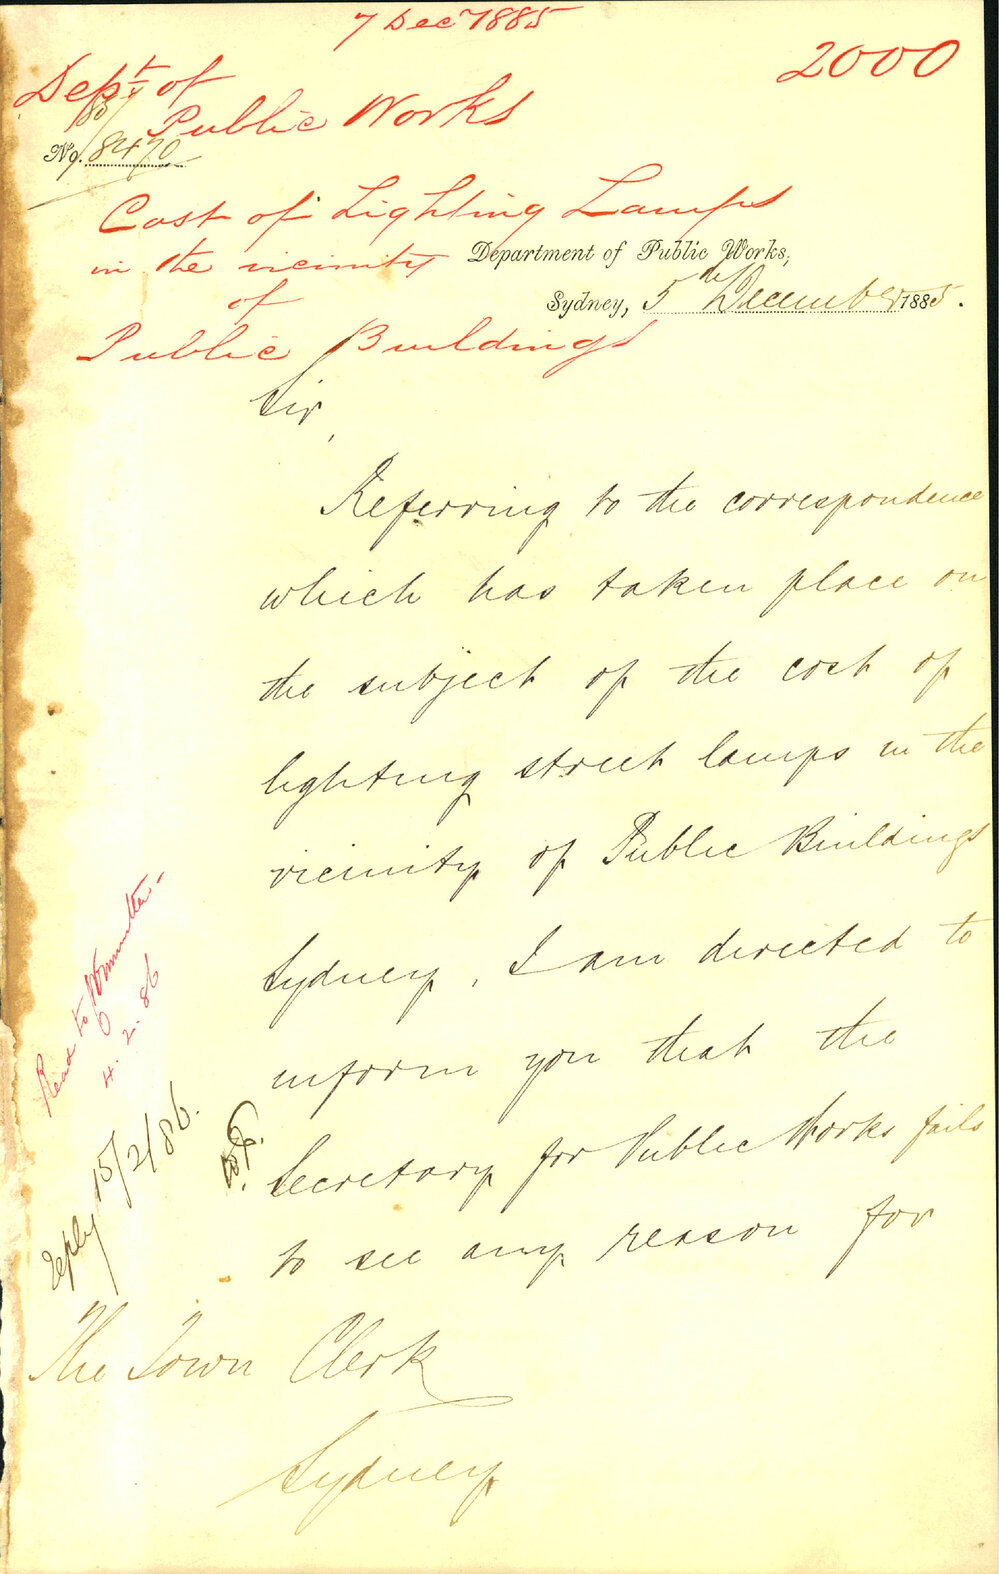 7 Dec 1885
2000
Dept of
Public Works
85/
No. 8470
Cost of Lighting Lamps
in the vicinity
of
Public Buildings
Department of Public Works,
Sydney, 5th December 1885.
Sir,
Referring to the correspondence
which has taken place on
the subject of the cost of
lighting street lamps in the
vicinity of Public Buildings
Sydney, I am directed to
inform you that the
Secretary for Public Works fails
to see any reason for
Read to Committee-
4.2.86
reply 15/2/86.
The Town Clerk
Sydney